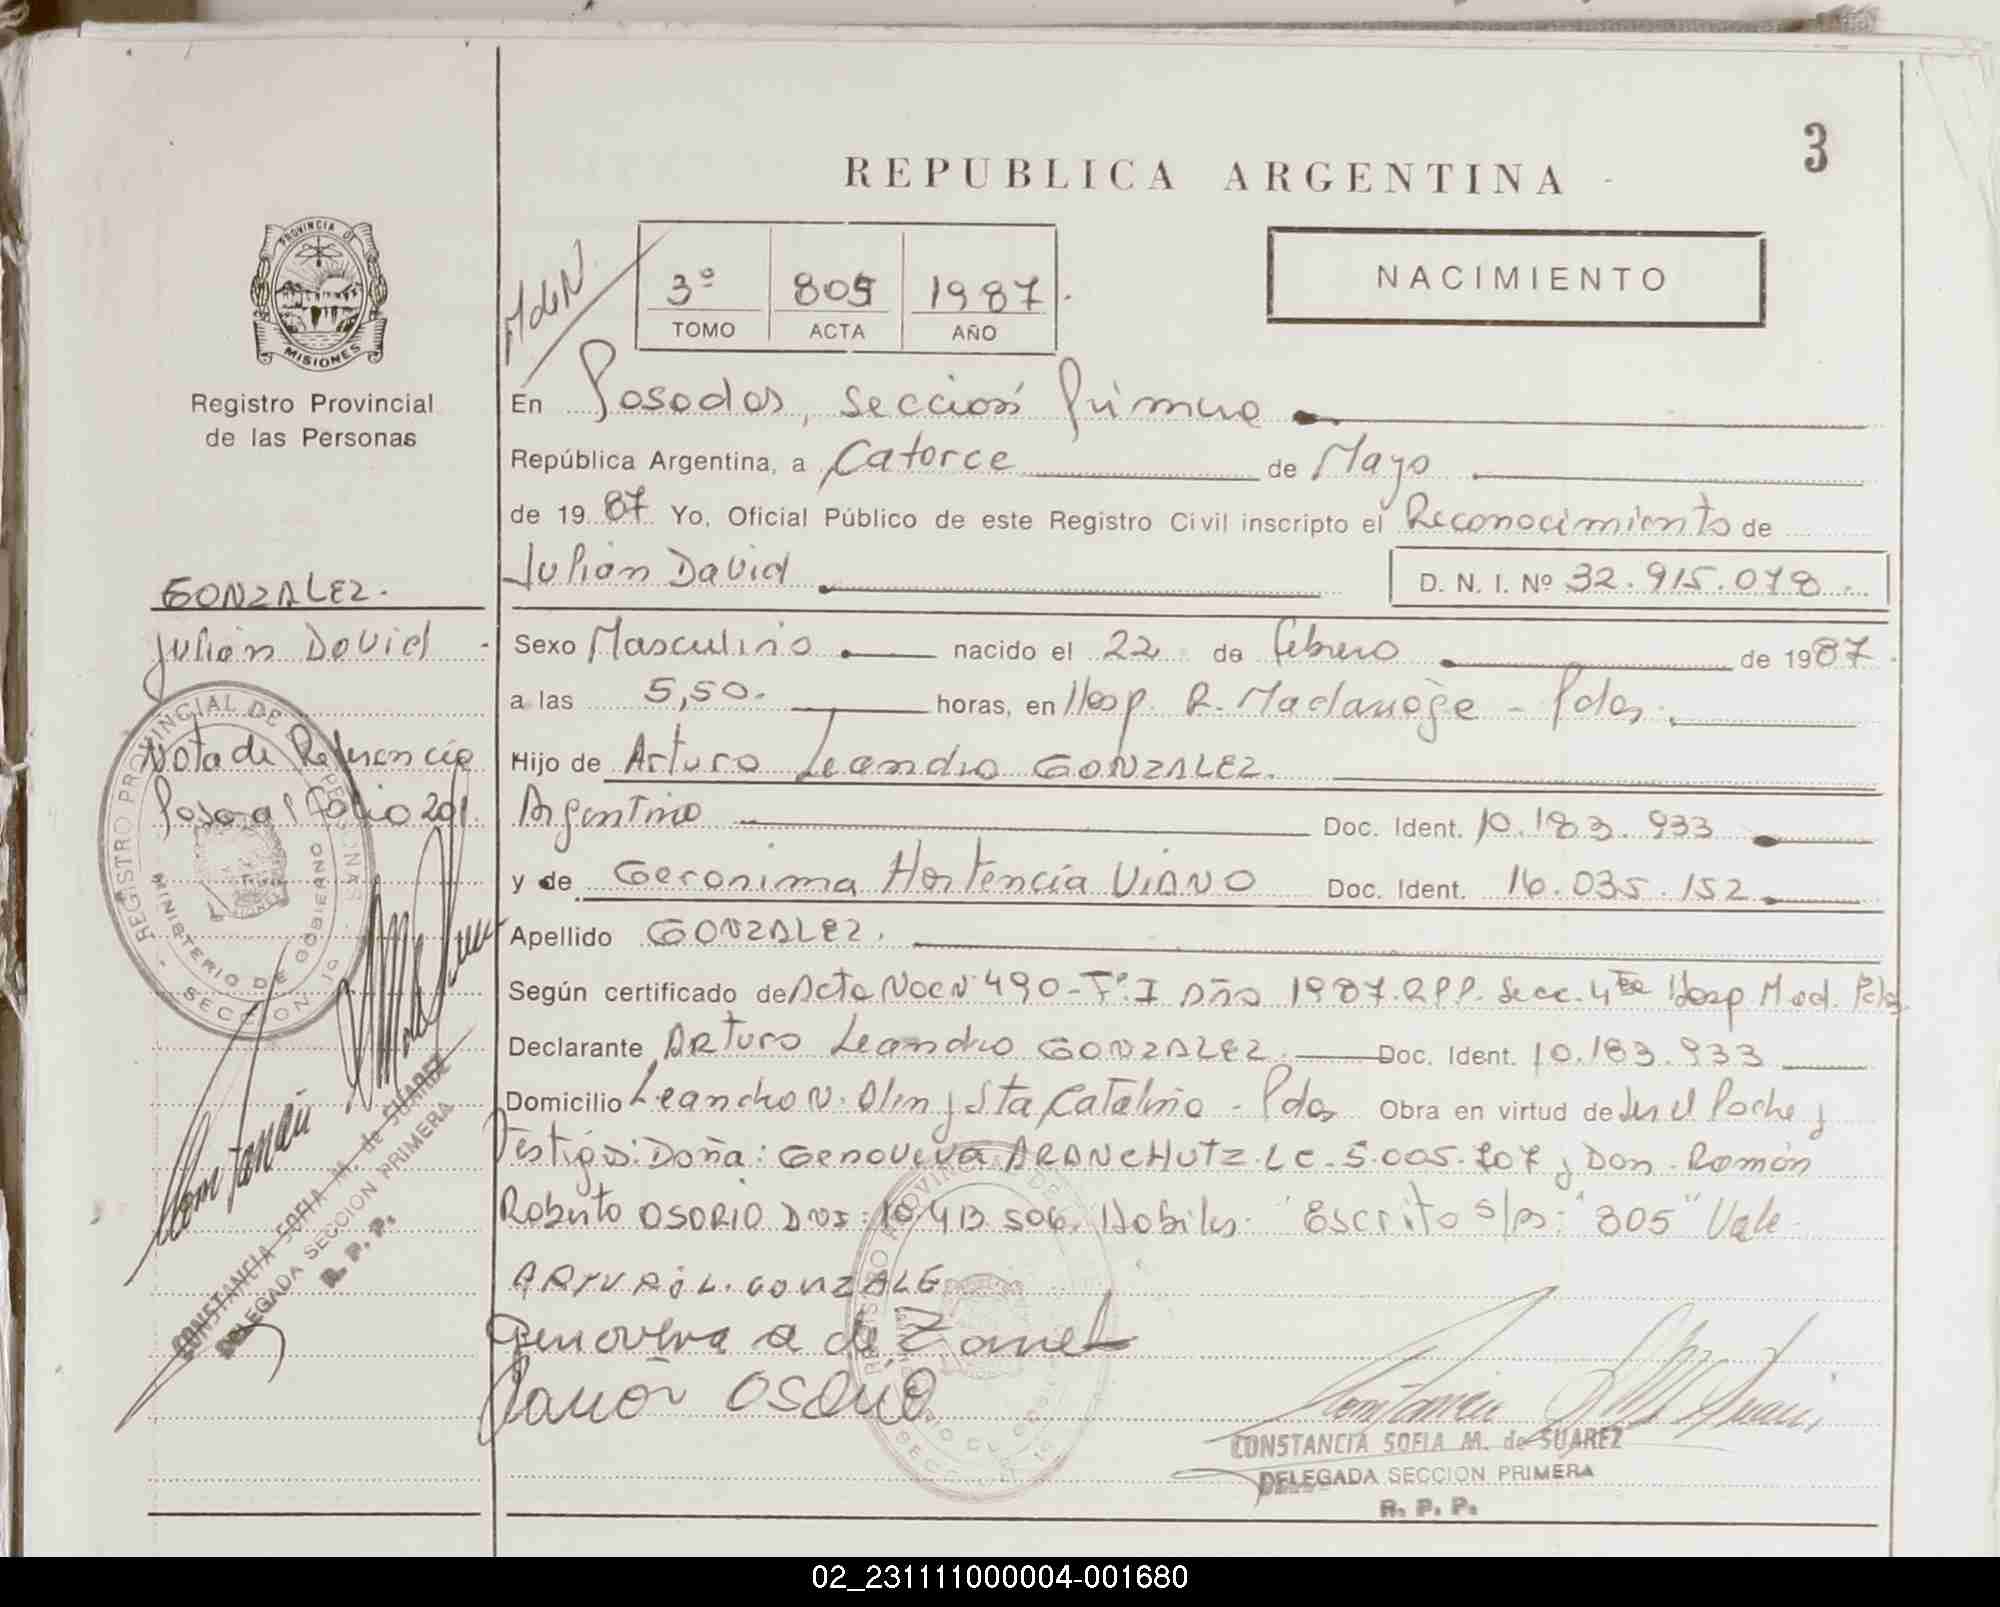 3
REPUBLICA ARGENTINA
PROVINCIA DE
MISIONES
Registro Provincial
de las Personas
MdeN
3º 805 1987
TOMO ACTA AÑO
NACIMIENTO
En Posadas, sección Primera
República Argentina, a Catorce de Mayo
de 1987 Yo, Oficial Público de este Registro Civil inscripto el Reconocimiento de
Julián David D. N. I. Nº 32.915.078
GONZALEZ.
Julián David
Sexo Masculino nacido el 22 de febrero de 1987
a las 5,50. horas, en Hosp. R. Madariaga - Pdas.
Nota de Referencia
Pasa al folio 201.
Hijo de Arturo Leandro GONZALEZ.
Argentino Doc. Ident. 10.183.933
y de Geronima Hortencia VIANO Doc. Ident. 16.035.152
Apellido GONZALEZ.
Según certificado de Acta Nac Nº 490 - Tº. I Año 1987. R.P.P. Secc. 4ta Hosp. Mad. Pdas
Declarante Arturo Leandro GONZALEZ Doc. Ident. 10.183.933
Domicilio Leandro N. Alem y Sta Catalina - Pdas Obra en virtud de Ser el Padre y
Testigos: Doña: Genoveva ARANCHUTZ. LC. 5.005.707 y Don Ramón
Roberto OSORIO DNI: 10.413.506. Habiles: Escrito s/p: "805" Vale
ARTURO L. GONZALE
Genoveva A de Zonet
Ramón OSORIO
REGISTRO PROVINCIAL DE LAS PERSONAS
MINISTERIO DE GOBIERNO
SECCION 1a
CONSTANCIA SOFIA M. de SUAREZ
DELEGADA SECCION PRIMERA
R. P. P.
CONSTANCIA SOFIA M. de SUAREZ
DELEGADA SECCION PRIMERA
R. P. P.
02_231111000004-001680